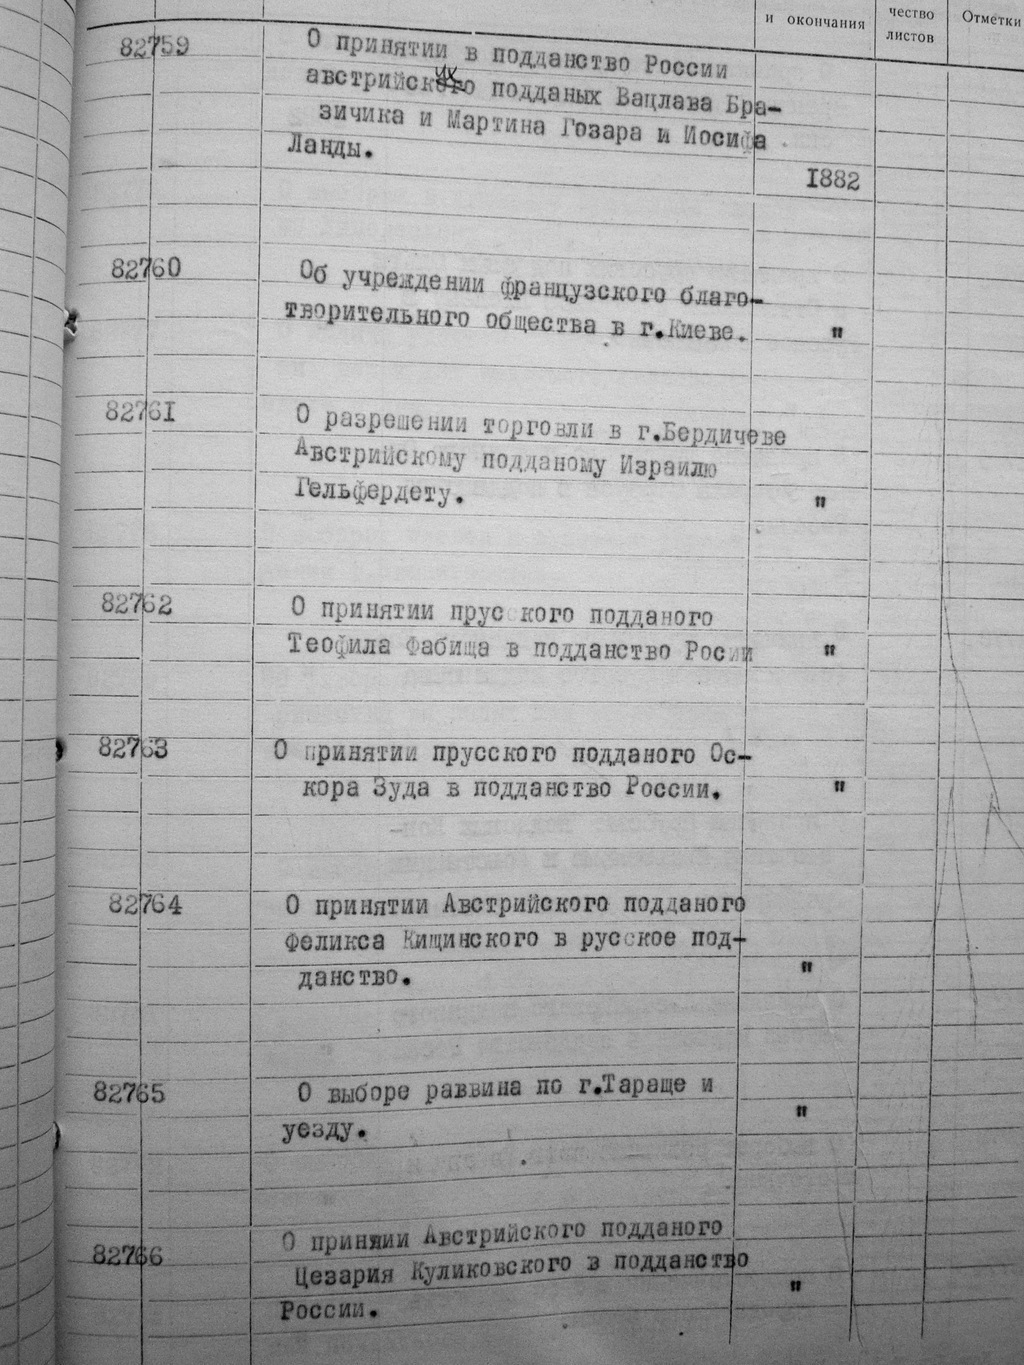 и окончания
чество
листов
Отметки
82759
О принятии в подданство России
австрийских подданых Вацлава Бра-
зичика и Мартина Гозара и Иосифа
Ланды.
1882
82760
Об учреждении французского благо-
творительного общества в г.Киеве.
"
82761
О разрешении торговли в г.Бердичеве
Австрийскому подданому Израилю
Гельфердету.
"
82762
О принятии прусского подданого
Теофила Фабища в подданство Росии
"
82763
О принятии прусского подданого Ос-
кора Зуда в подданство России.
"
82764
О принятии Австрийского подданого
Феликса Кищинского в русское под-
данство.
"
82765
О выборе раввина по г.Тараще и
уезду.
"
82766
О приняии Австрийского подданого
Цезария Куликовского в подданство
России.
"